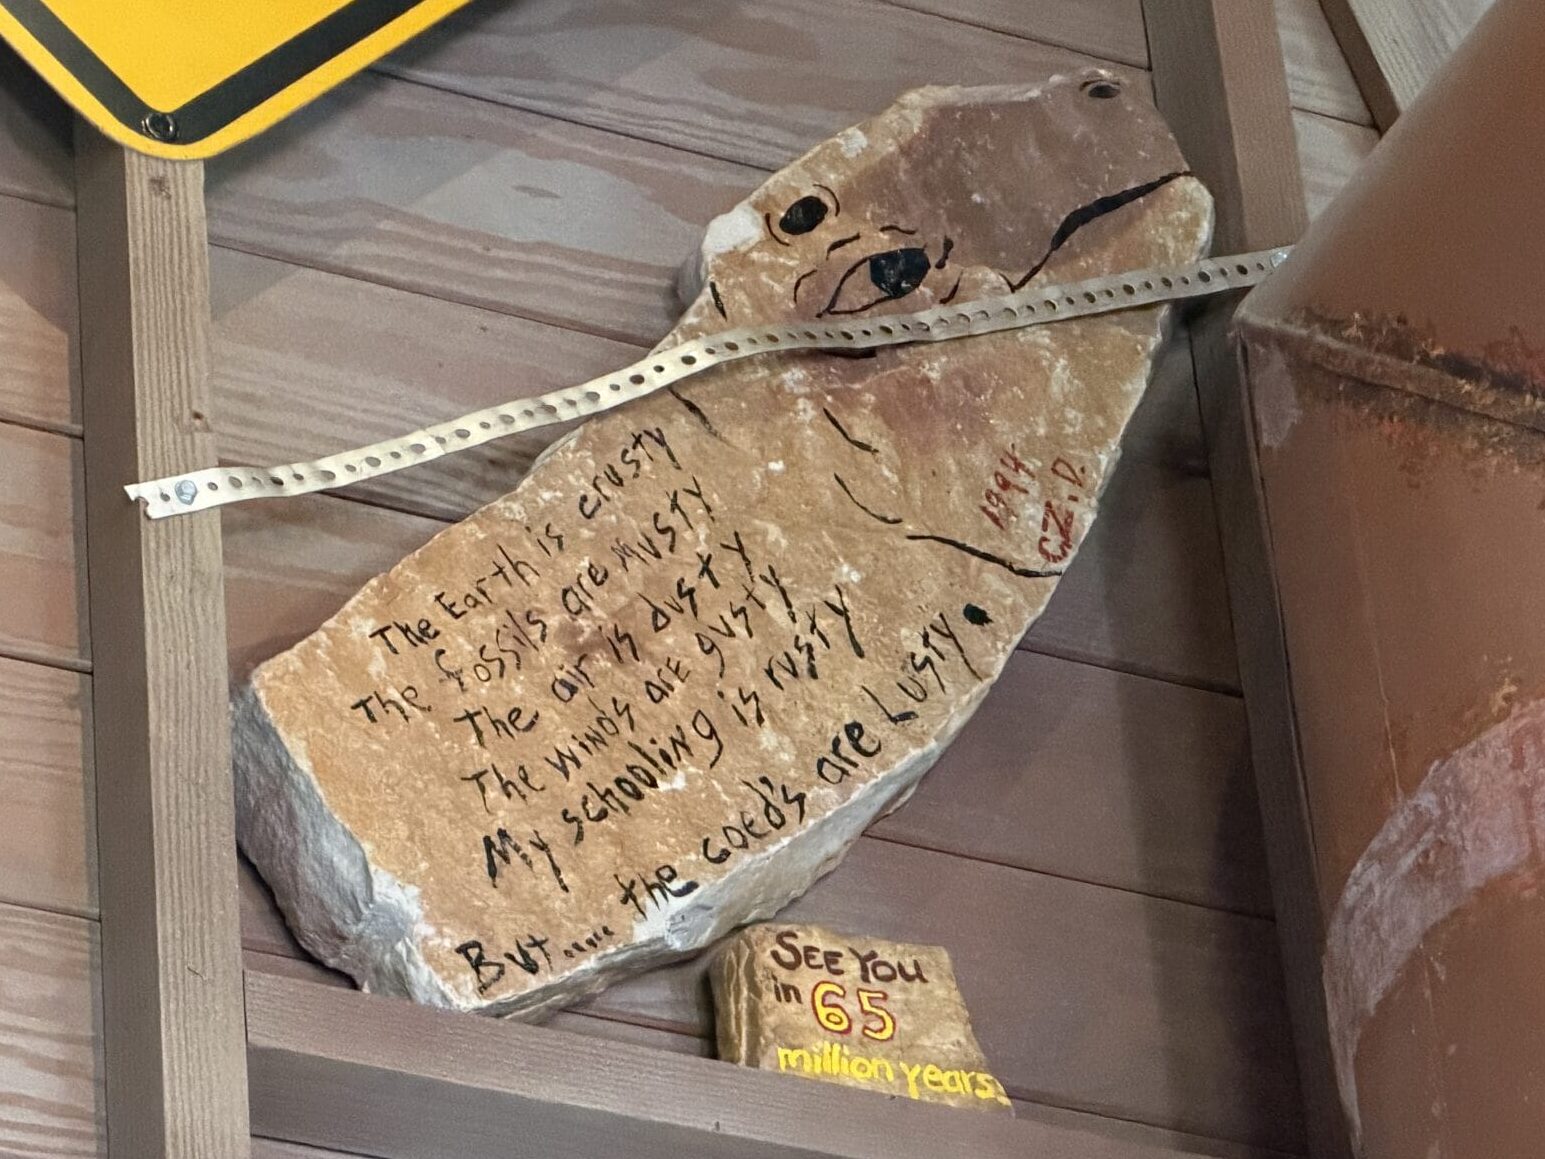 1994
CZ.D.
The Earth is crusty
The fossils are Musty
The air is dusty
The winds are gusty
My schooling is rusty
But..... the coed's are Lusty.
SEE YOU
in 65
million years.